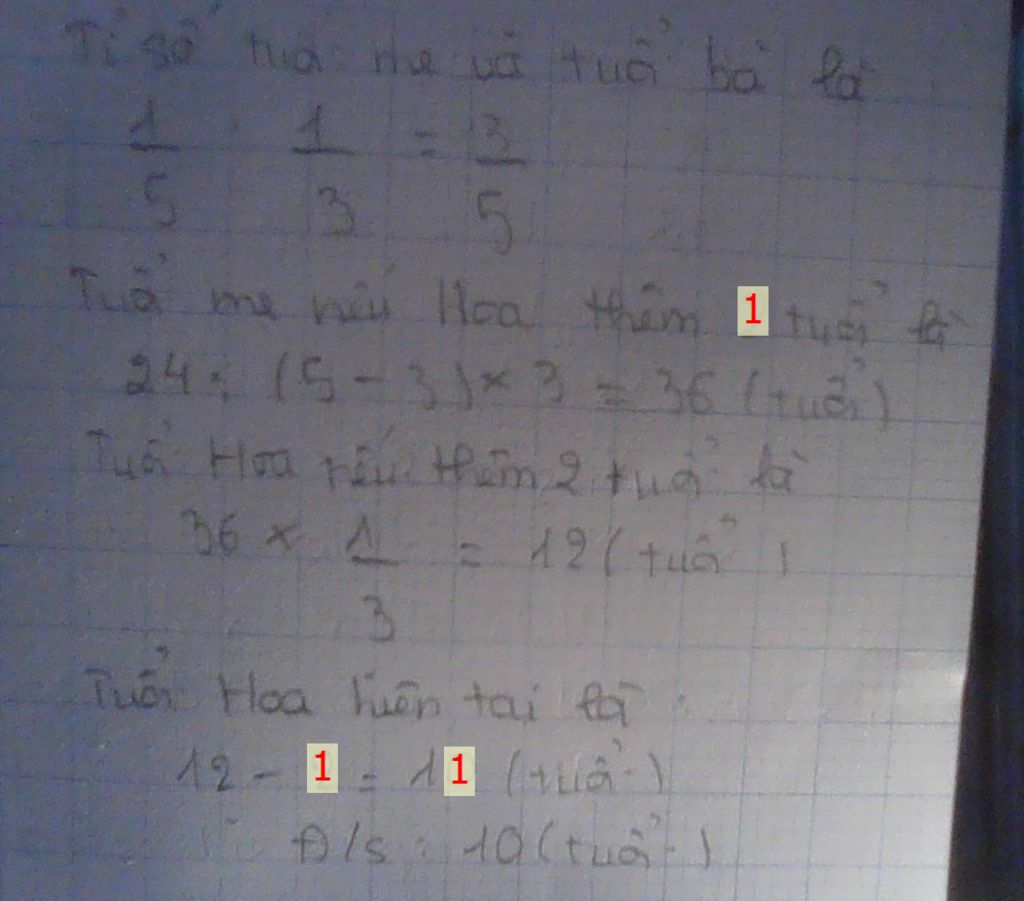 Tỉ số tuổi mẹ và tuổi bà là
1/5 : 1/3 = 3/5
Tuổi mẹ nếu Hoa thêm 1 tuổi là
24 : (5 - 3) x 3 = 36 (tuổi)
Tuổi Hoa nếu thêm 2 tuổi là
36 x 1/3 = 12 (tuổi)
Tuổi Hoa hiện tại là :
12 - 1 = 11 (tuổi)
Đ/s : 10 (tuổi)